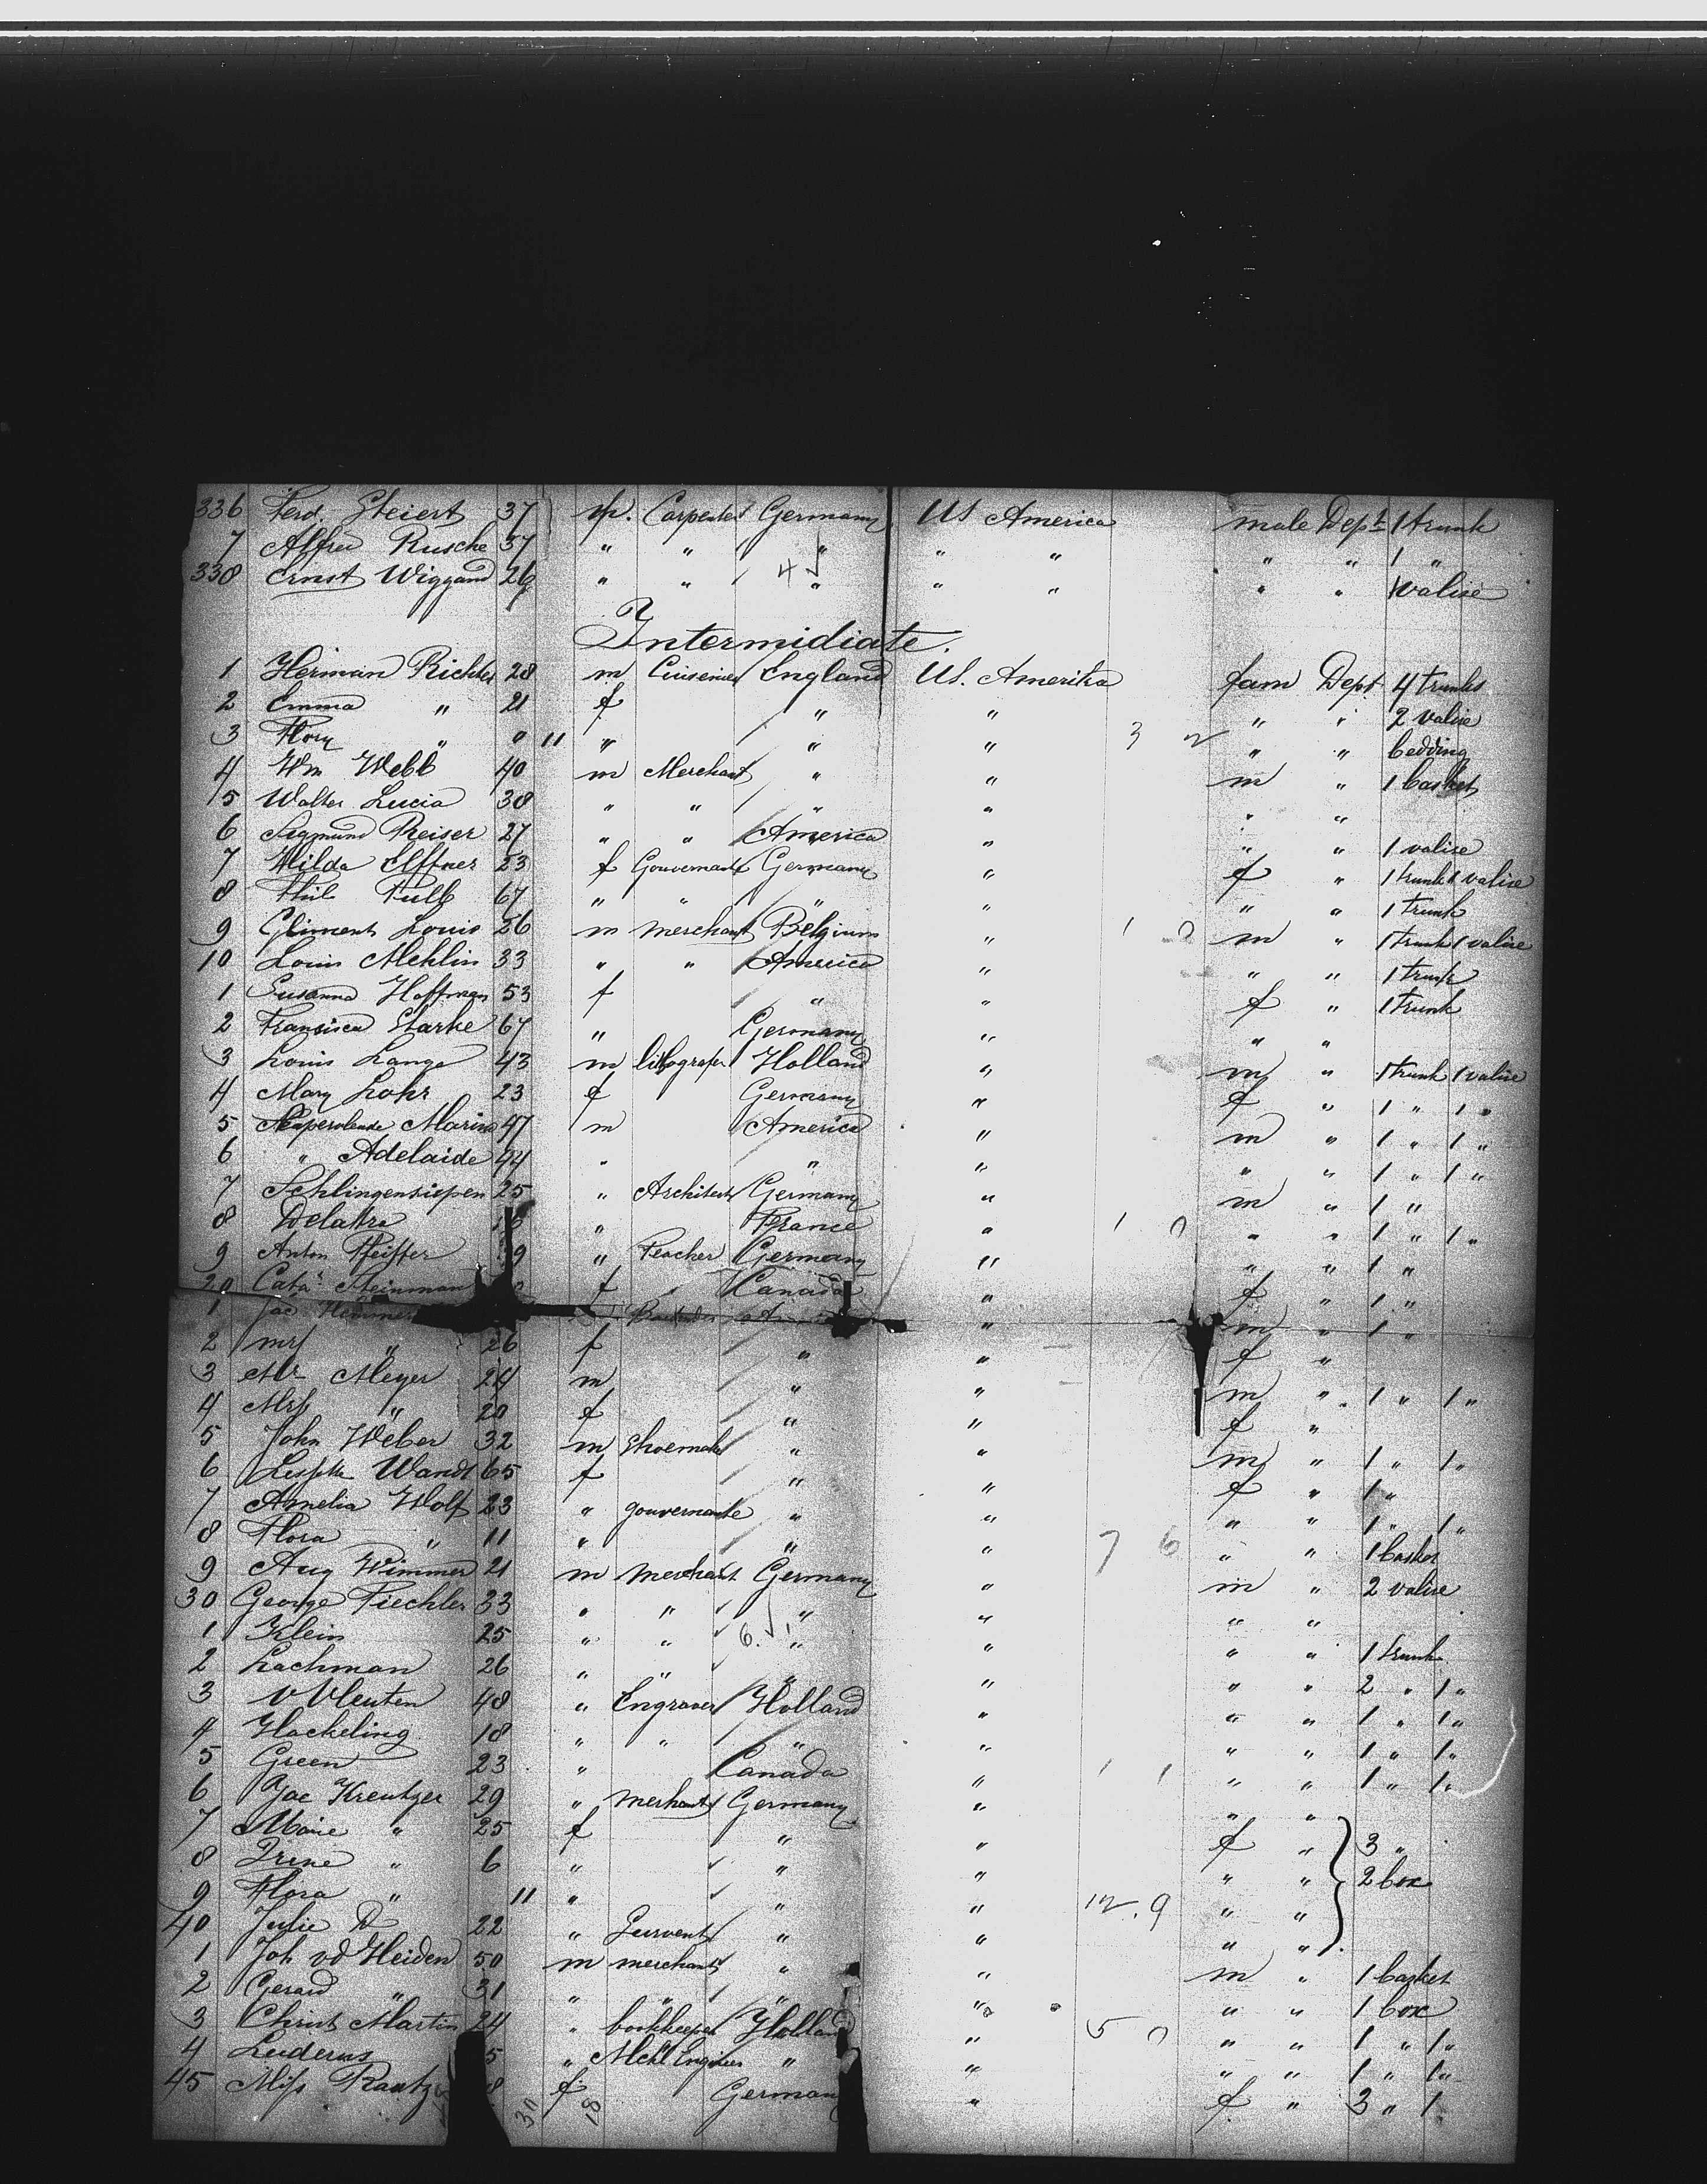 336 Ferd. Steiert 37 m. Carpenter Germany US America male Dept. 1 trunk
7 Alfred Rusche 37 " " " " " " " 1 "
338 Ernst Wiggand 26 " " " " " " " 1 valise
4
Intermidiate.
1 Herman Richter 28 m Cuisenier England US. Amerika fam Dept 4 trunks
2 Emma " 21 f " " " " 2 valise
3 Flory " 0 11 " " " 3 2 " " bedding
4 Wm Webb 40 m Merchant " " m " 1 basket
5 Walter Lucia 38 " " " " " "
6 Segmund Reiser 27 " " America " " " 1 valise
7 Hilda Elffner 23 f Gouvernante Germany " f " 1 trunk 1 valise
8 Phil Full 67 " " " " " " 1 trunk
9 Climent Louis 26 m merchant Belgium " 1 0 m " 1 trunk 1 valise
10 Louis Mehlin 33 " " America " " " 1 trunk
1 Susanna Hoffman 53 f " " f " 1 trunk
2 Fransisca Starke 67 " Germany " " "
3 Louis Lange 43 m lithografer Holland " m " 1 trunk 1 valise
4 Mary Lohr 23 f Germany " f " 1 " 1 "
5 Marina 47 m America " m " 1 " 1 "
6 " Adelaide 44 " " " " " 1 " 1 "
7 Schlingensiepen 25 " Architect Germany " m " 1 "
8 Delattre " France " 1 0 " " 1 " 1 "
9 Anton Pfeiffer 39 " Teacher Germany " " " 1 "
20 Cath. Steinman f Canada " f " 1 "
1 Jac " m " 1 "
2 mrs " 26 f " " f "
3 Mr Meyer 24 m " " m " 1 " 1 "
4 Mrs " 20 f " " f "
5 John Weber 32 m Shoemaker " " m " 1 " 1 "
6 Wandt 65 f " " f " 1 "
7 Amelia Wolf 23 " gouvernante " " " " 1 " 1 "
8 Flora " 11 " " " 7 6 " " 1 basket
9 Aug Wimmer 21 m merchant Germany " m " 2 valise
30 George Fiechler 33 " " " " " "
1 Klein 25 " " 6. " " " " 1 trunk
2 Lachman 26 " " " " " " 2 " 1 "
3 v Vleuten 48 " Engraver Holland " " " 1 " 1 "
4 Hackeling 18 " " " " " " 1 " 1 "
5 Green 23 " Canada " 1 1 " " 1 " 1 "
6 Jac Kreutzer 29 " merchant Germany " " "
7 Marie " 25 f " " f " 3 "
8 Irene " 6 " " " " " 2 box
9 Flora " 11 " " " 12. 9 " "
40 Julie D 22 " Servent " " " "
1 Joh vd Heiden 50 m merchant " " m " 1 basket
2 Gerard " 31 " " " " " " 1 box
3 Christ Martin 24 " bookkeeper Holland " 5 0 " " 1 " 1 "
4 Luderus 5 " Mchl Engineer " " " " 1 " 1 "
45 Miss Rautz 8 f Germany " f " 3 " 1
30 18